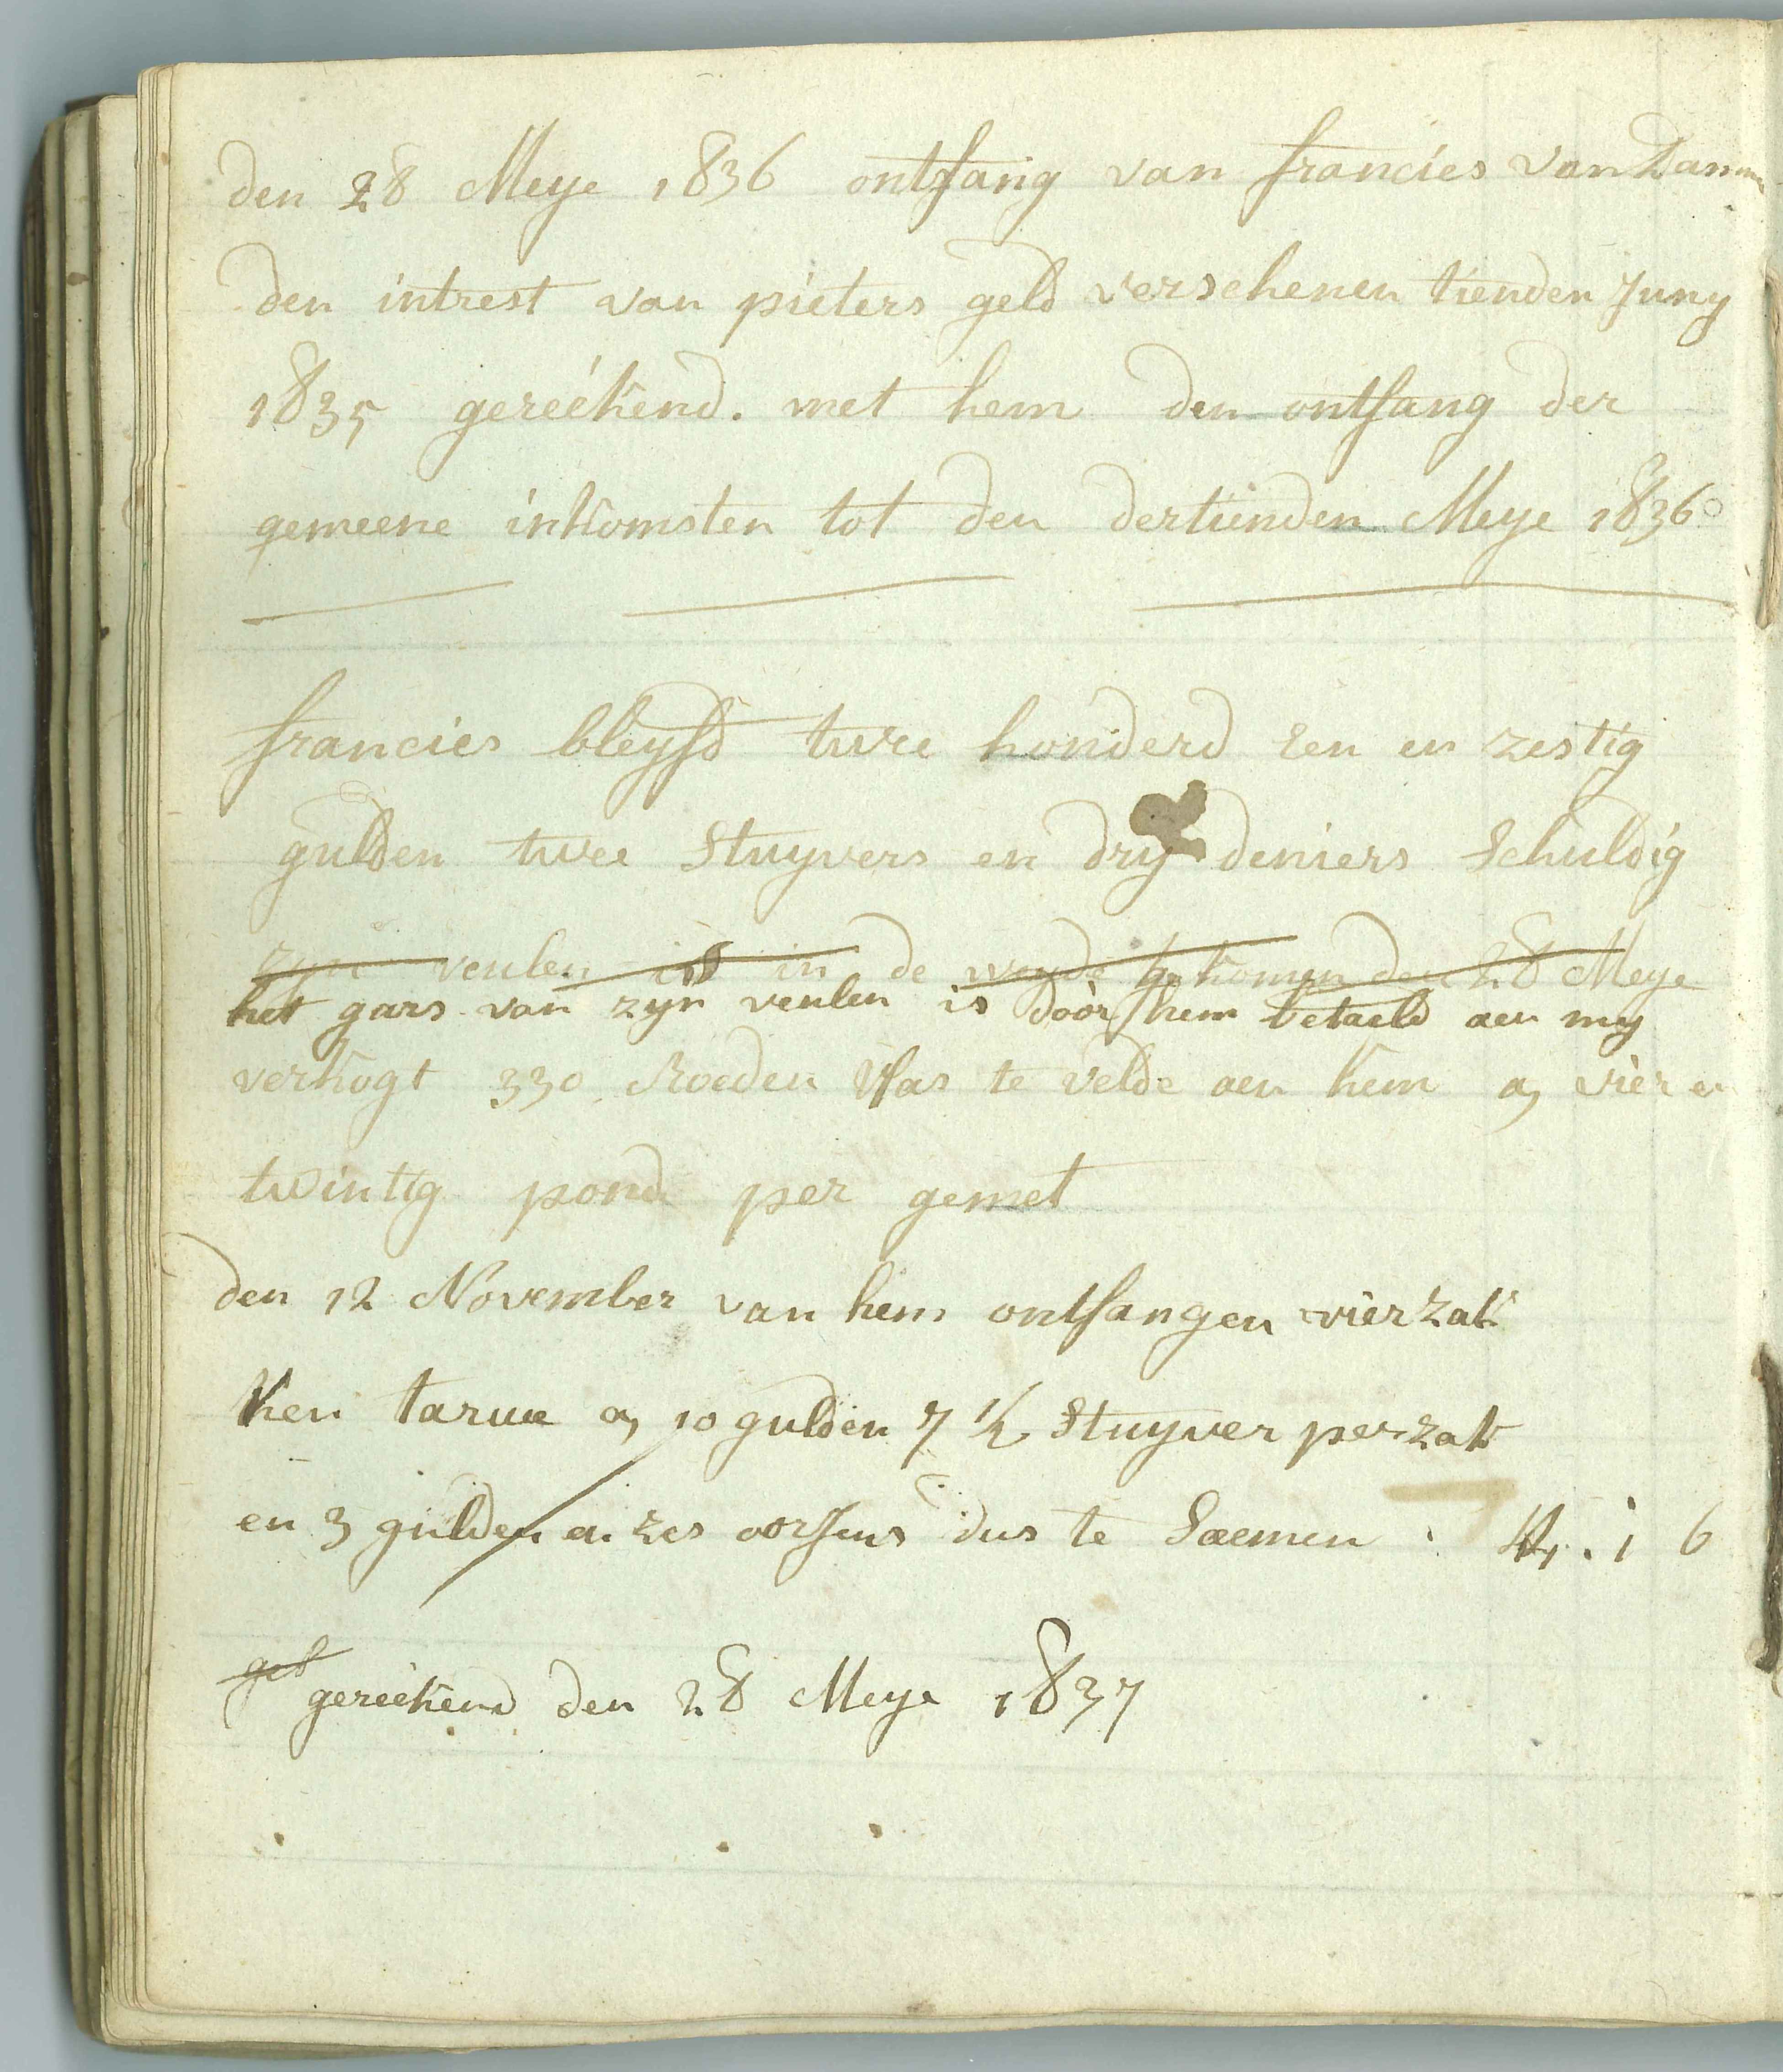 den 28 Meye 1836 ontfang van francies van Damme
den intrest van pieters geld verschenen tienden Juny
1835 gereékend. met hem den ontfang der
gemeene inkomsten tot den dertienden Meye 1836
francies bleyfd twee honderd een en zestig
gulden twee Stuyvers en dry deniers Schuldig
zyn veulen is in de weyde gekomen den 28 Meye
het gars van zyn veulen is door hem betaeld aen my
verkogt 330 Roeden Vlas te velde aen hem a vier en
twintig pond per gemet
den 12 November van hem ontfangen vier zak
ken taruw a 10 gulden 7 1/2 Stuyver per zak
en 3 gulden a zes oorjens dus te Saemen
gereekend den 28 Meye 1837